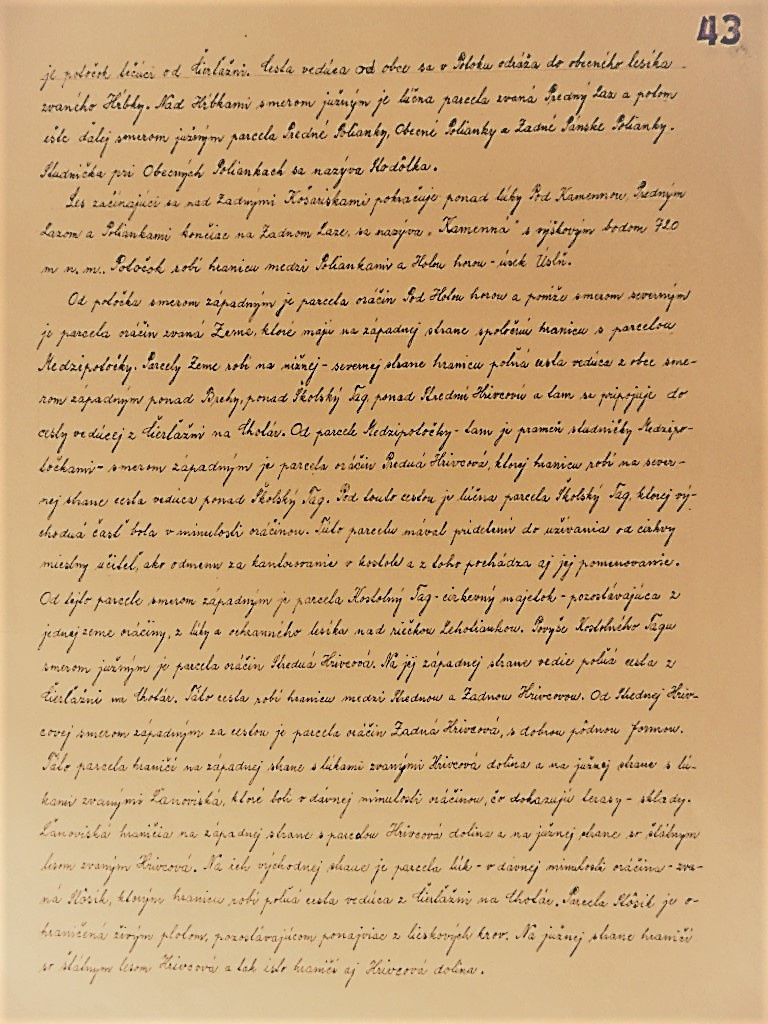 43
je potôčok tečúci od Čierťažni. Cesta vedúca od obce sa v Potoku odráža do obecného lesíka
zvaného Hŕbky. Nad Hŕbkami smerom južným je lúčna parcela zvaná Predný Laz a potom
ešte ďalej smerom južným parcela Predné Polianky, Obecné Polianky a Zadné Pánske Polianky.
Studnička pri Obecných Poliankach sa nazýva Stodôlka.
Les začínajúci sa nad Zadnými Košariskami pokračuje ponad lúky Pod Kamennou, Predným
Lazom a Poliankami končiac na Zadnom Laze, sa nazýva „Kamenná" s výškovým bodom 720
m n. m.. Potôčok robí hranicu medzi Poliankami a Holou horou - úsek
Od potôčka smerom západným je parcela oráčin Pod Holou horou a poniže smerom severným
je parcela oráčin zvaná Zeme, ktoré majú na západnej strane spoločnú hranicu s parcelou
Medzipotôčky. Parcely Zeme robí na nižnej - severnej strane hranicu poľná cesta vedúca z obce sme-
rom západným ponad Brehy, ponad Školský Tag, ponad Strednú Hrivcovú a tam sa pripojuje do
cesty vedúcej z Čierťažni na Chotár. Od parcele Medzipotôčky - tam je prameň studničky Medzipo-
točkami - smerom západným je parcela oráčin Predná Hrivcová, ktorej hranicu robí na sever-
nej strane cesta vedúca ponad Školský Tag. Pod touto cestou je lúčna parcela Školský Tag, ktorej vý-
chodná časť bola v minulosti oráčinou. Túto parcelu mával pridelenú do užívania od cirkvy
miestny učiteľ, ako odmenu za kantorovanie v kostole a z toho pochádza aj jej pomenovanie.
Od tejto parcele smerom západným je parcela Kostolný Tag - cirkevný majetok - pozostávajúca z
jednej zeme oráčiny, z lúky a ochranného lesíka nad riečkou Lehotiankou. Povyše Kostolného Tagu
smerom južným je parcela oráčin Stredná Hrivcová. Na jej západnej strane vedie poľná cesta z
Čierťažni na Chotár. Táto cesta robí hranicu medzi Strednou a Zadnou Hrivcovou. Od Strednej Hriv-
covej smerom západným za cestou je parcela oráčin Zadná Hrivcová, s dobrou pôdnou formou.
Táto parcela hraničí na západnej strane s lúkami zvanými Hrivcová dolina a na južnej strane s lú-
kami zvanými Lanoviská, ktoré boli v dávnej minulosti oráčinou, čo dokazujú terasy - sklady.
Lanoviská hraničia na západnej strane s parcelou Hrivcová dolina a na južnej strane so štátnym
lesom zvaným Hrivcová. Na ich východnej strane je parcela lúk - v dávnej minulosti oráčina - zva-
ná Stôsik, ktorým hranicu robí poľná cesta vedúca z Čierťažni na Chotár. Parcela Stôsik je o-
hraničená živým plotom, pozostávajúcom ponajviac z lieskových krov. Na južnej strane hraničí
so štátnym lesom Hrivcová a tak isto hraničí aj Hrivcová dolina.